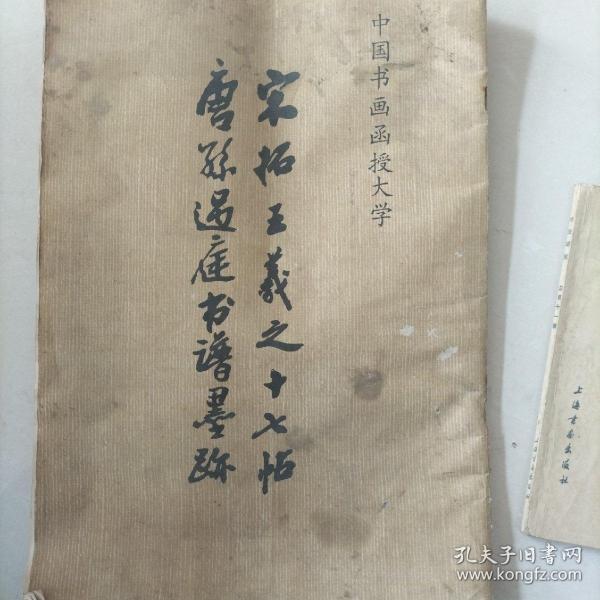 中国书画函授大学
宋拓王羲之十七帖
唐孙过庭书谱墨跡
上海书画出版社
孔夫子旧书网
www.kongfz.com